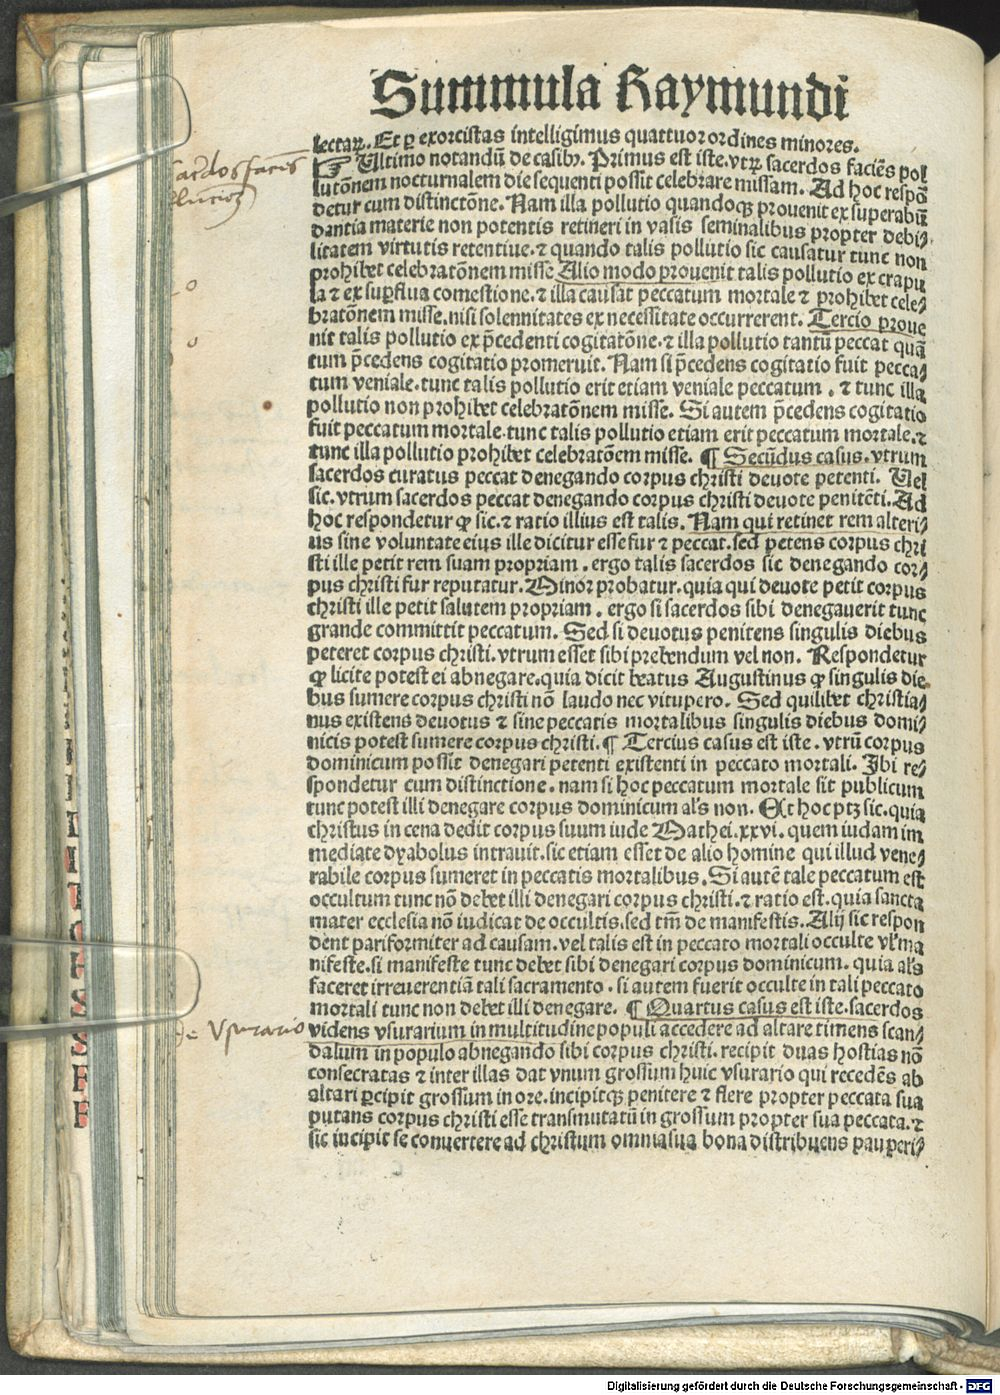 Summula Raymundi
lectaꝝ. Et ꝑ exorcistas intelligimus quattuor ordines minores.
Ultimo notandū de casibꝫ. Primus est iste. vtꝝ sacerdos faciēs pol
lutōnem nocturnalem die sequenti possit celebrare missam. Ad hoc respō
detur cum distinctōne. Nam illa pollutio quandoqꝫ prouenit ex superabū
dantia materie non potentis retineri in vasis seminalibus propter debi⸗
litatem virtutis retentiue. ⁊ quando talis pollutio sic causatur tunc non
prohibet celebratōnem misse Alio modo prouenit talis pollutio ex crapu
la ⁊ ex suꝑflua comestione. ⁊ illa causat peccatum mortale ⁊ prohibet cele⸗
bratōnem misse. nisi solennitates ex necessitate occurrerent. Tercio proue
nit talis pollutio ex p̄cedenti cogitatōne. ⁊ illa pollutio tantū peccat quā
tum p̄cedens cogitatio promeruit. Nam si p̄cedens cogitatio fuit pecca⸗
tum veniale. tunc talis pollutio erit etiam veniale peccatum. ⁊ tunc illa
pollutio non prohibet celebratōnem misse. Si autem p̄cedens cogitatio
fuit peccatum mortale. tunc talis pollutio etiam erit peccatum mortale. ⁊
tunc illa pollutio prohibet celebratōem misse. ¶ Secūdus casus. vtrum
sacerdos curatus peccat denegando corpus christi deuote petenti. Uel
sic. vtrum sacerdos peccat denegando corpus christi deuote penitēti. Ad
hoc respondetur ꝙ sic. ⁊ ratio illius est talis. Nam qui retinet rem alteri⸗
us sine voluntate eius ille dicitur esse fur ⁊ peccat. sed petens corpus chri
sti ille petit rem suam propriam. ergo talis sacerdos sic denegando cor⸗
pus christi fur reputatur. Minor probatur. quia qui deuote petit corpus
christi ille petit salutem propriam. ergo si sacerdos sibi denegauerit tunc
grande committit peccatum. Sed si deuotus penitens singulis diebus
peteret corpus christi. vtrum esset sibi prebendum vel non. Respondetur
ꝙ licite potest ei abnegare. quia dicit beatus Augustinus ꝙ singulis die⸗
bus sumere corpus christi nō laudo nec vitupero. Sed quilibet christia⸗
nus existens deuotus ⁊ sine peccatis mortalibus singulis diebus domi⸗
nicis potest sumere corpus christi. ¶ Tercius casus est iste. vtrū corpus
dominicum possit denegari petenti existenti in peccato mortali. Ibi re⸗
spondetur cum distinctione. nam si hoc peccatum mortale sit publicum
tunc potest illi denegare corpus dominicum al's non. Et hoc ptꝫ sic. quia
christus in cena dedit corpus suum iude Mathei. xxvi. quem iudam im
mediate dyabolus intrauit. sic etiam esset de alio homine qui illud vene⸗
rabile corpus sumeret in peccatis mortalibus. Si autē tale peccatum est
occultum tunc nō debet illi denegari corpus christi. ⁊ ratio est. quia sancta
mater ecclesia nō iudicat de occultis. sed tm̄ de manifestis. Alij sic respon
dent pariformiter ad causam. vel talis est in peccato mortali occulte vl' ma
nifeste. si manifeste tunc debet sibi denegari corpus dominicum. quia al's
faceret irreuerentiā tali sacramento. si autem fuerit occulte in tali peccato
mortali tunc non debet illi denegare. ¶ Quartus casus est iste. sacerdos
de Vsurario
videns vsurarium in multitudine populi accedere ad altare timens scan⸗
dalum in populo abnegando sibi corpus christi. recipit duas hostias nō
consecratas ⁊ inter illas dat vnum grossum huic vsurario qui recedēs ab
altari ꝑcipit grossum in ore. incipitqꝫ penitere ⁊ flere propter peccata sua
putans corpus christi esse transmutatū in grossum propter sua peccata. ⁊
sic incipit se conuertere ad christum omnia sua bona distribuens pauperi⸗
Digitalisierung gefördert durch die Deutsche Forschungsgemeinschaft - DFG